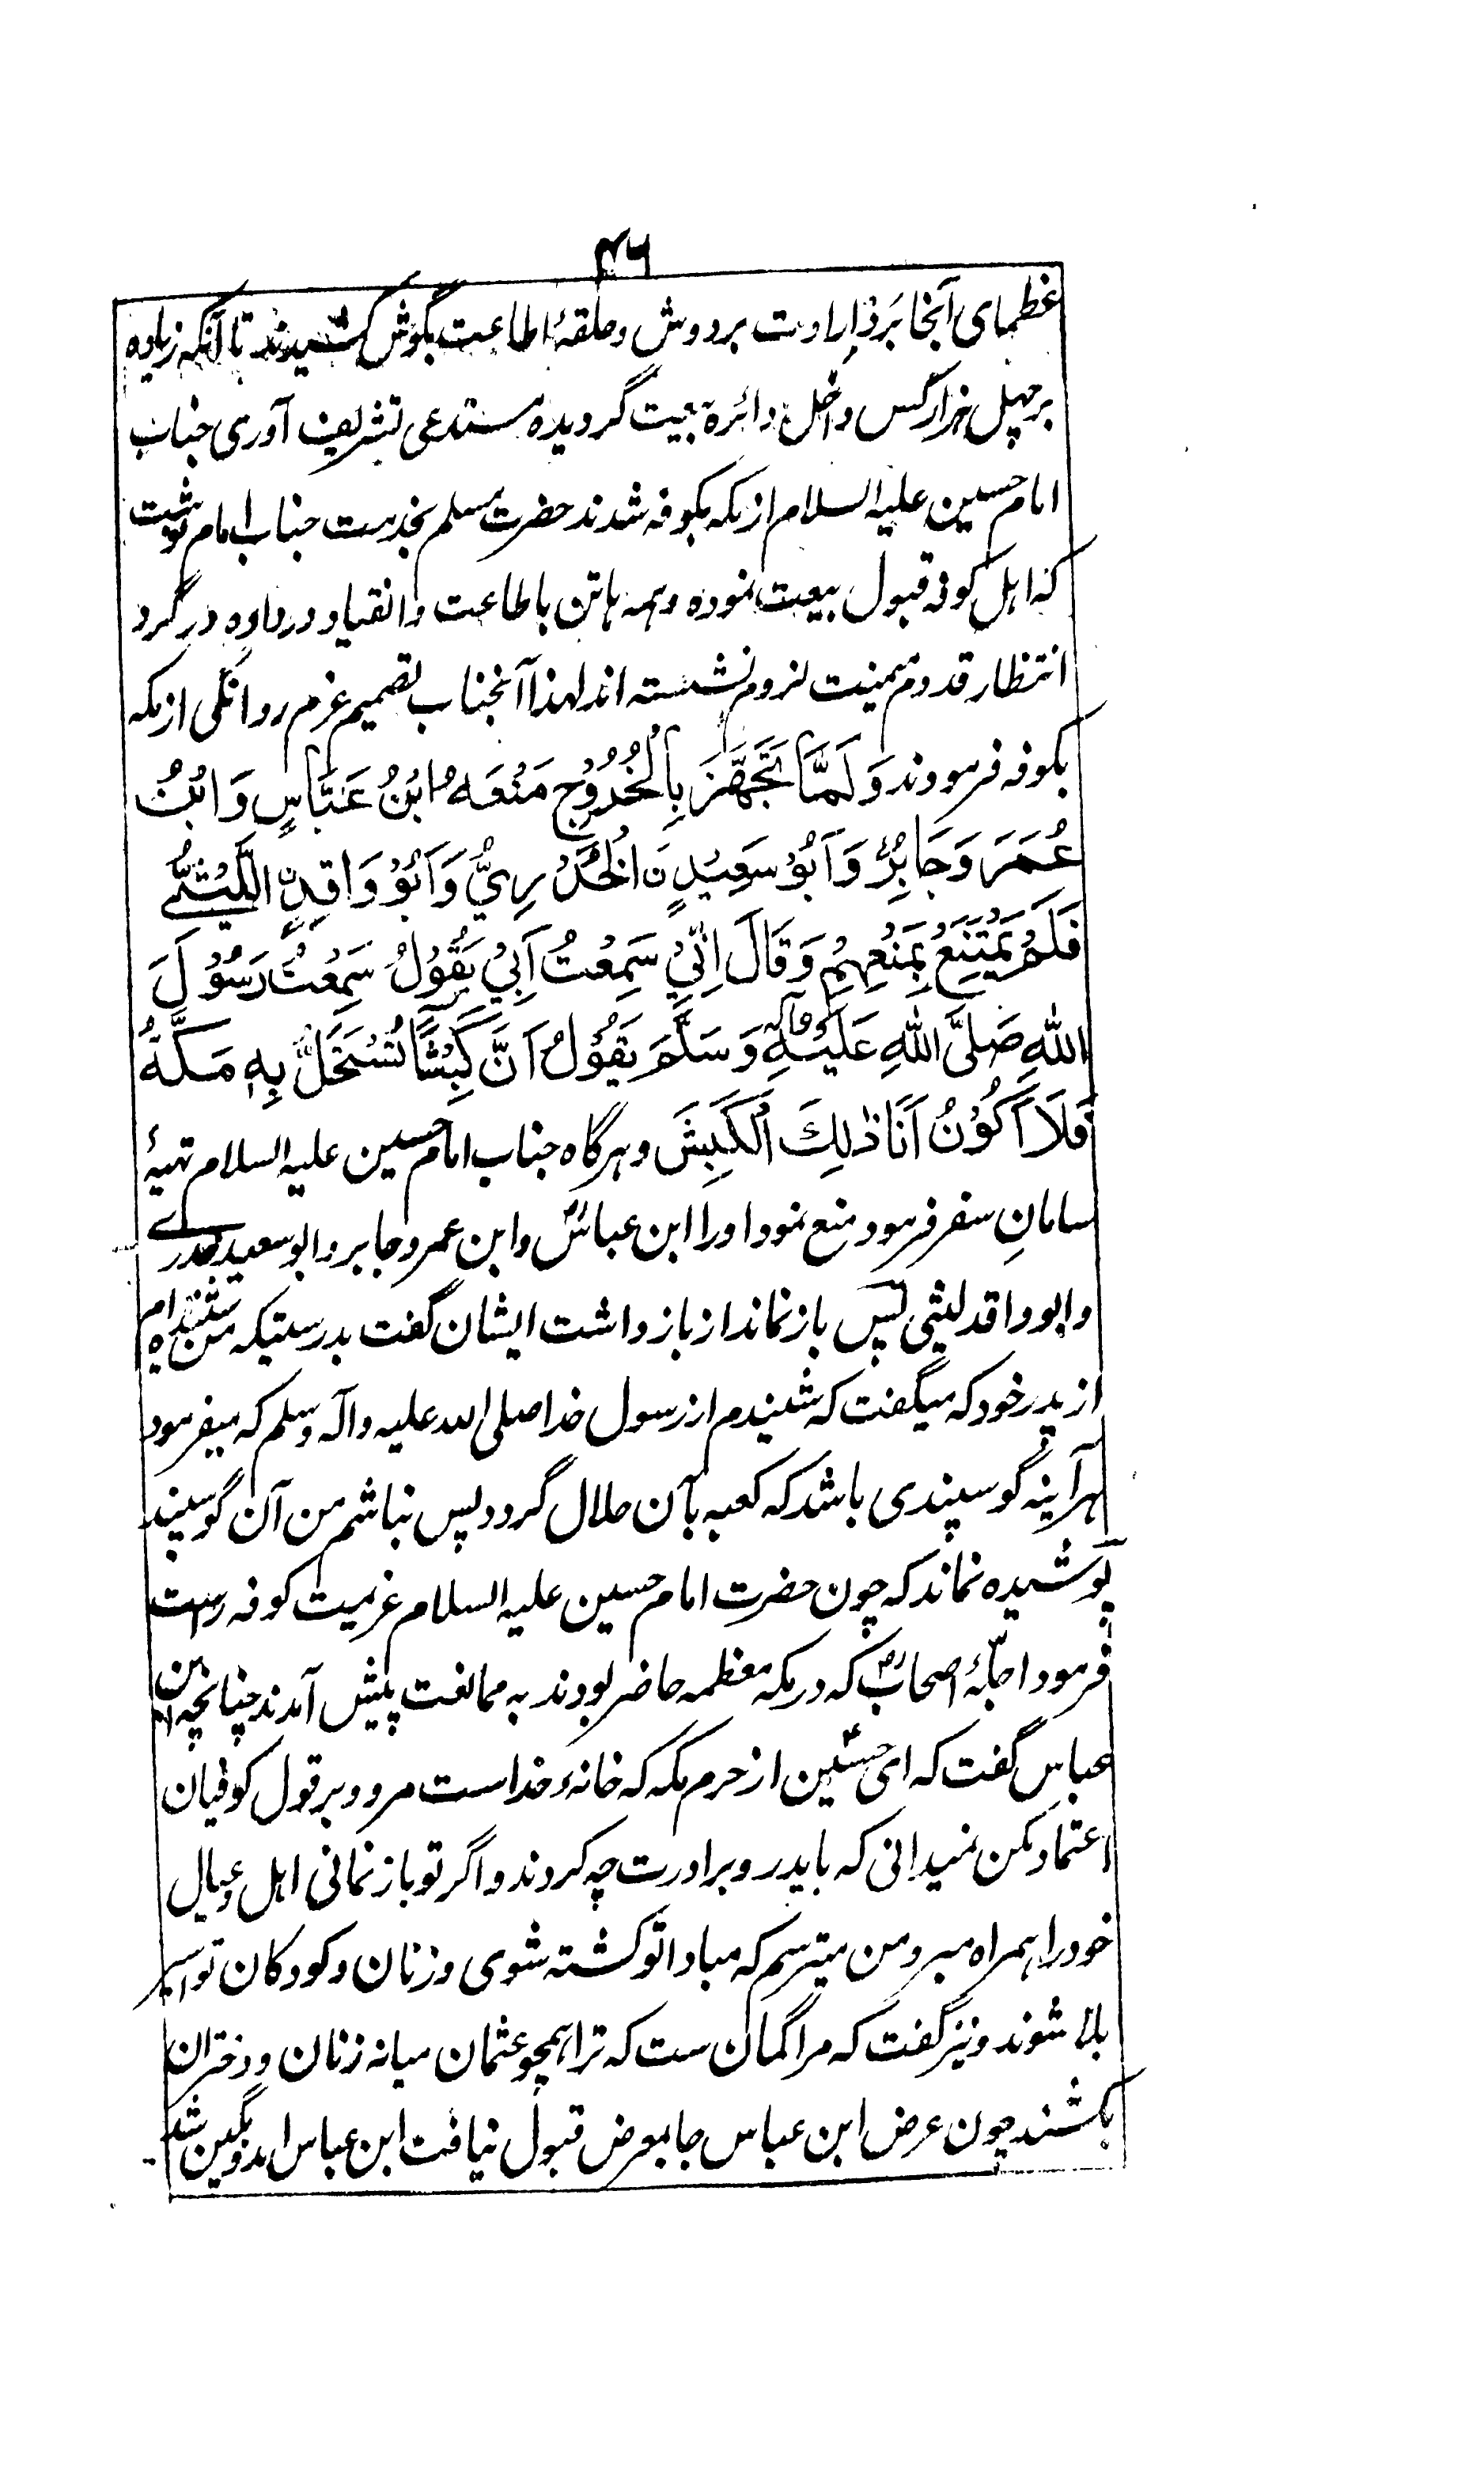 ۴۶
عظمای آنجا بَر ارادت بر دوش و حلقهٔ اطاعت بگوش کشیدند تا آنکه زیاده
بر چهل هزار کس داخل دائرهٔ بیعت گردیده مستدعی تشریف آوری جناب
امام حسین علیه السلام از مکه بکوفه شدند حضرت مسلم بخدمت جناب امام نوشت
که اهل کوفه قبول بیعت نموده و همه ها تن باطاعت و انقیاد در داده در گرد
انتظار قدوم میمنت لزوم نشسته اند لهذا آنجناب تصمیم عزم روانگی از مکه
بکوفه فرمودند وَلَمَّا تَجَهَّزَ بِالْخُرُوْجِ مَنَعَهُ ابْنُ عَبَّاسٍ وَابْنُ
عُمَرَ وَجَابِرٌ وَاَبُوْ سَعِيْدٍ نِ الْخُدْرِيُّ وَاَبُوْ وَاقِدٍ اللَّيْثِيُّ
فَلَمْ يَمْتَنِعْ بِمَنْعِهِمْ وَقَالَ اِنِّيْ سَمِعْتُ اَبِيْ يَقُوْلُ سَمِعْتُ رَسُوْلَ
اللهِ صَلَّى اللهِ عَلَيْهِ وآله وَسَلَّمَ يَقُوْلُ اَنَّ كَبْشًا تُسْتَحَلُّ بِهٖ مَكَّةُ
فَلَا اَكُوْنُ اَنَا ذٰلِكَ الْكَبِشَ و هرگاه جناب امام حسین علیه السلام تهیهٔ
سامانِ سفر فرمود منع نمود او را ابن عباسؓ و ابن عمر و جابر و ابو سعید خدرے
و ابو واقد لیثی پس باز نماند از باز داشت ایشان گفت بدرستیکه من شنیده ام
از پدر خود که میگفت که شنیدم از رسول خدا صلی الله علیه وآله وسلم که میفرمود
هر آینه گوسپندی باشد که کعبه بآن حلال گردد پس نباشم من آن گوسپند
پوشیده نماند که چون حضرت امام حسین علیه السلام عزیمت کوفه راست
فرمود اجلّهٔ اصحابؓ که در مکه معظمه حاضر بودند به ممانعت پیش آمدند چنانچه ابن
عباس گفت که ای حسینؑ از حرم مکه که خانهٔ خداست مرو و بر قول کوفیان
اعتماد مکن نمیدانی که با پدر و برادرت چه کردند و اگر تو باز نمانی اهل و عیال
خود را همراه مبر و من میترسم که مبادا تو کشته شوی و زنان و کودکان تو اسیر
بلا شوند و نیز گفت که مرا گمان ست که ترا همچو عثمان میانه زنان و دختران
بکشند چون عرض ابن عباس جا بمعرض قبول نیافت ابن عباس اندوهگین شد